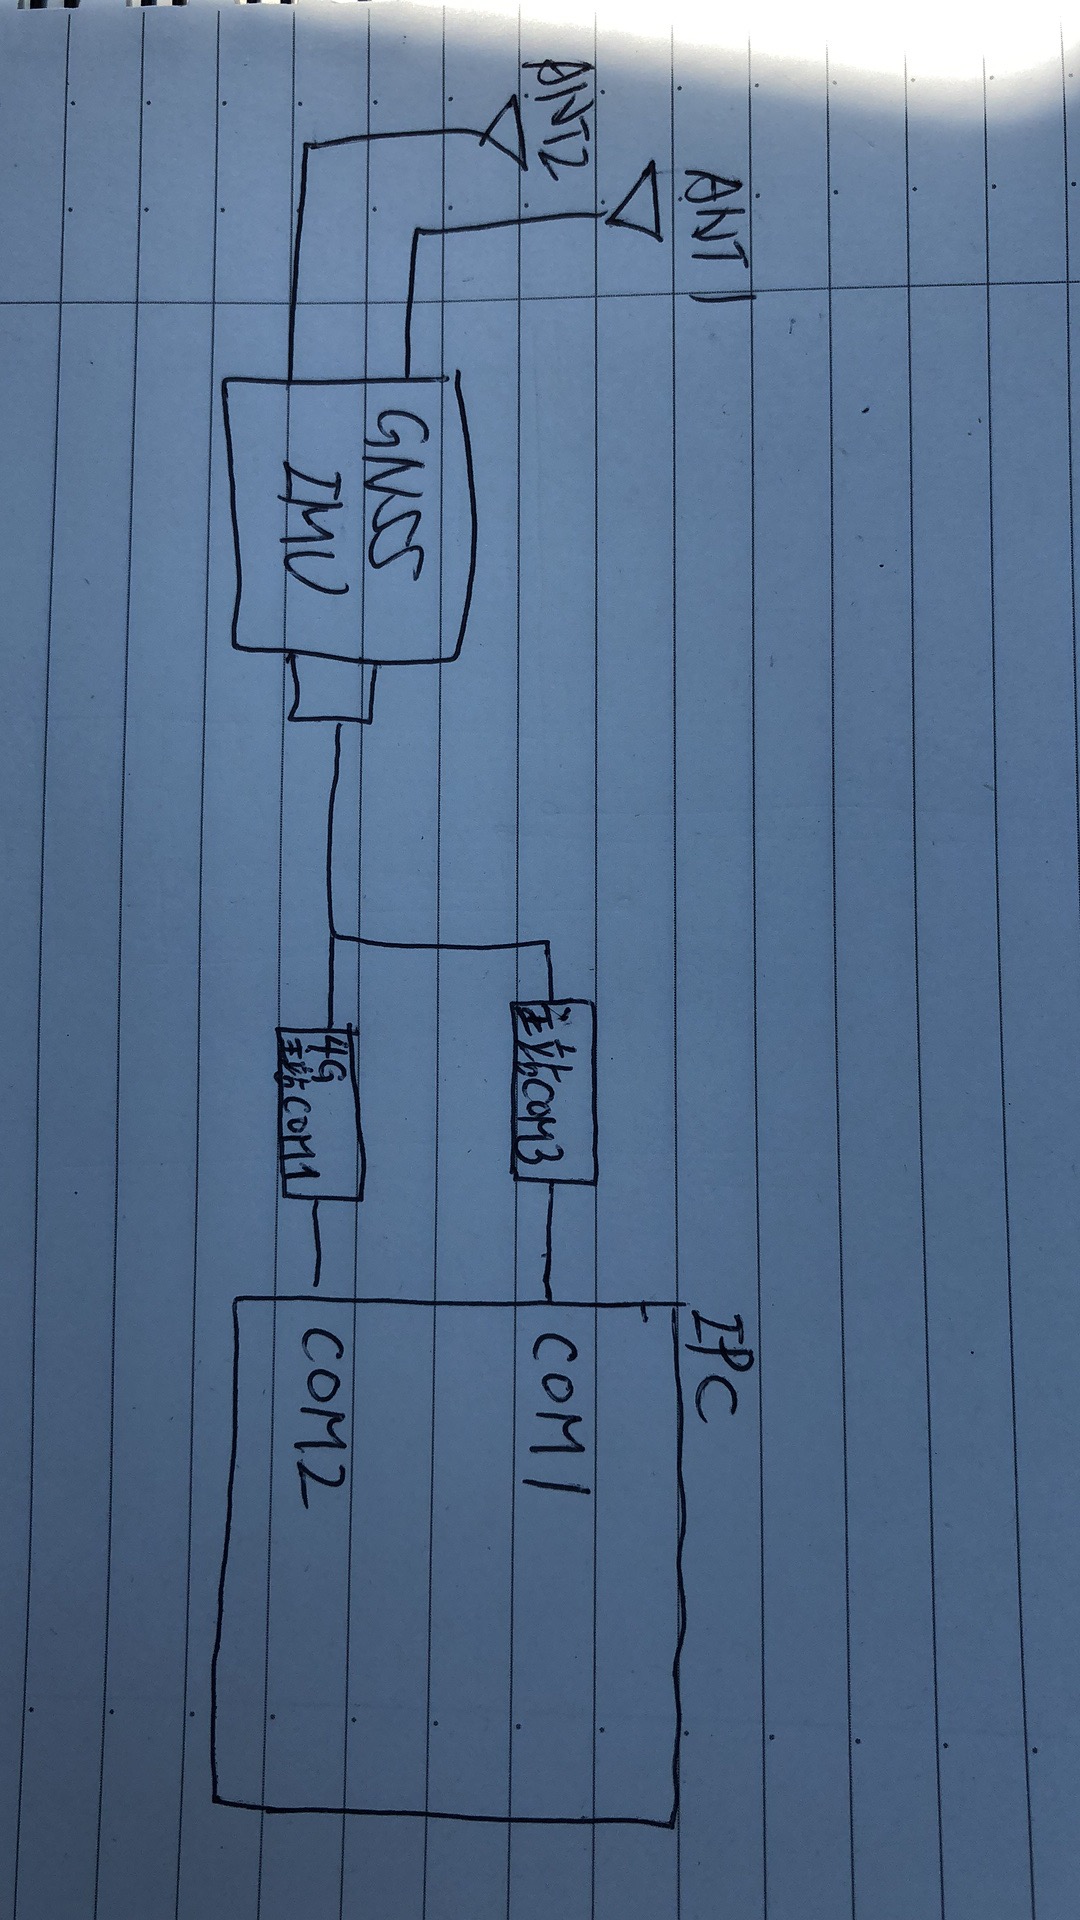 ANT1
ANT2
GNSS
IMU
主站COM3
4G
主站COM1
IPC
COM1
COM2